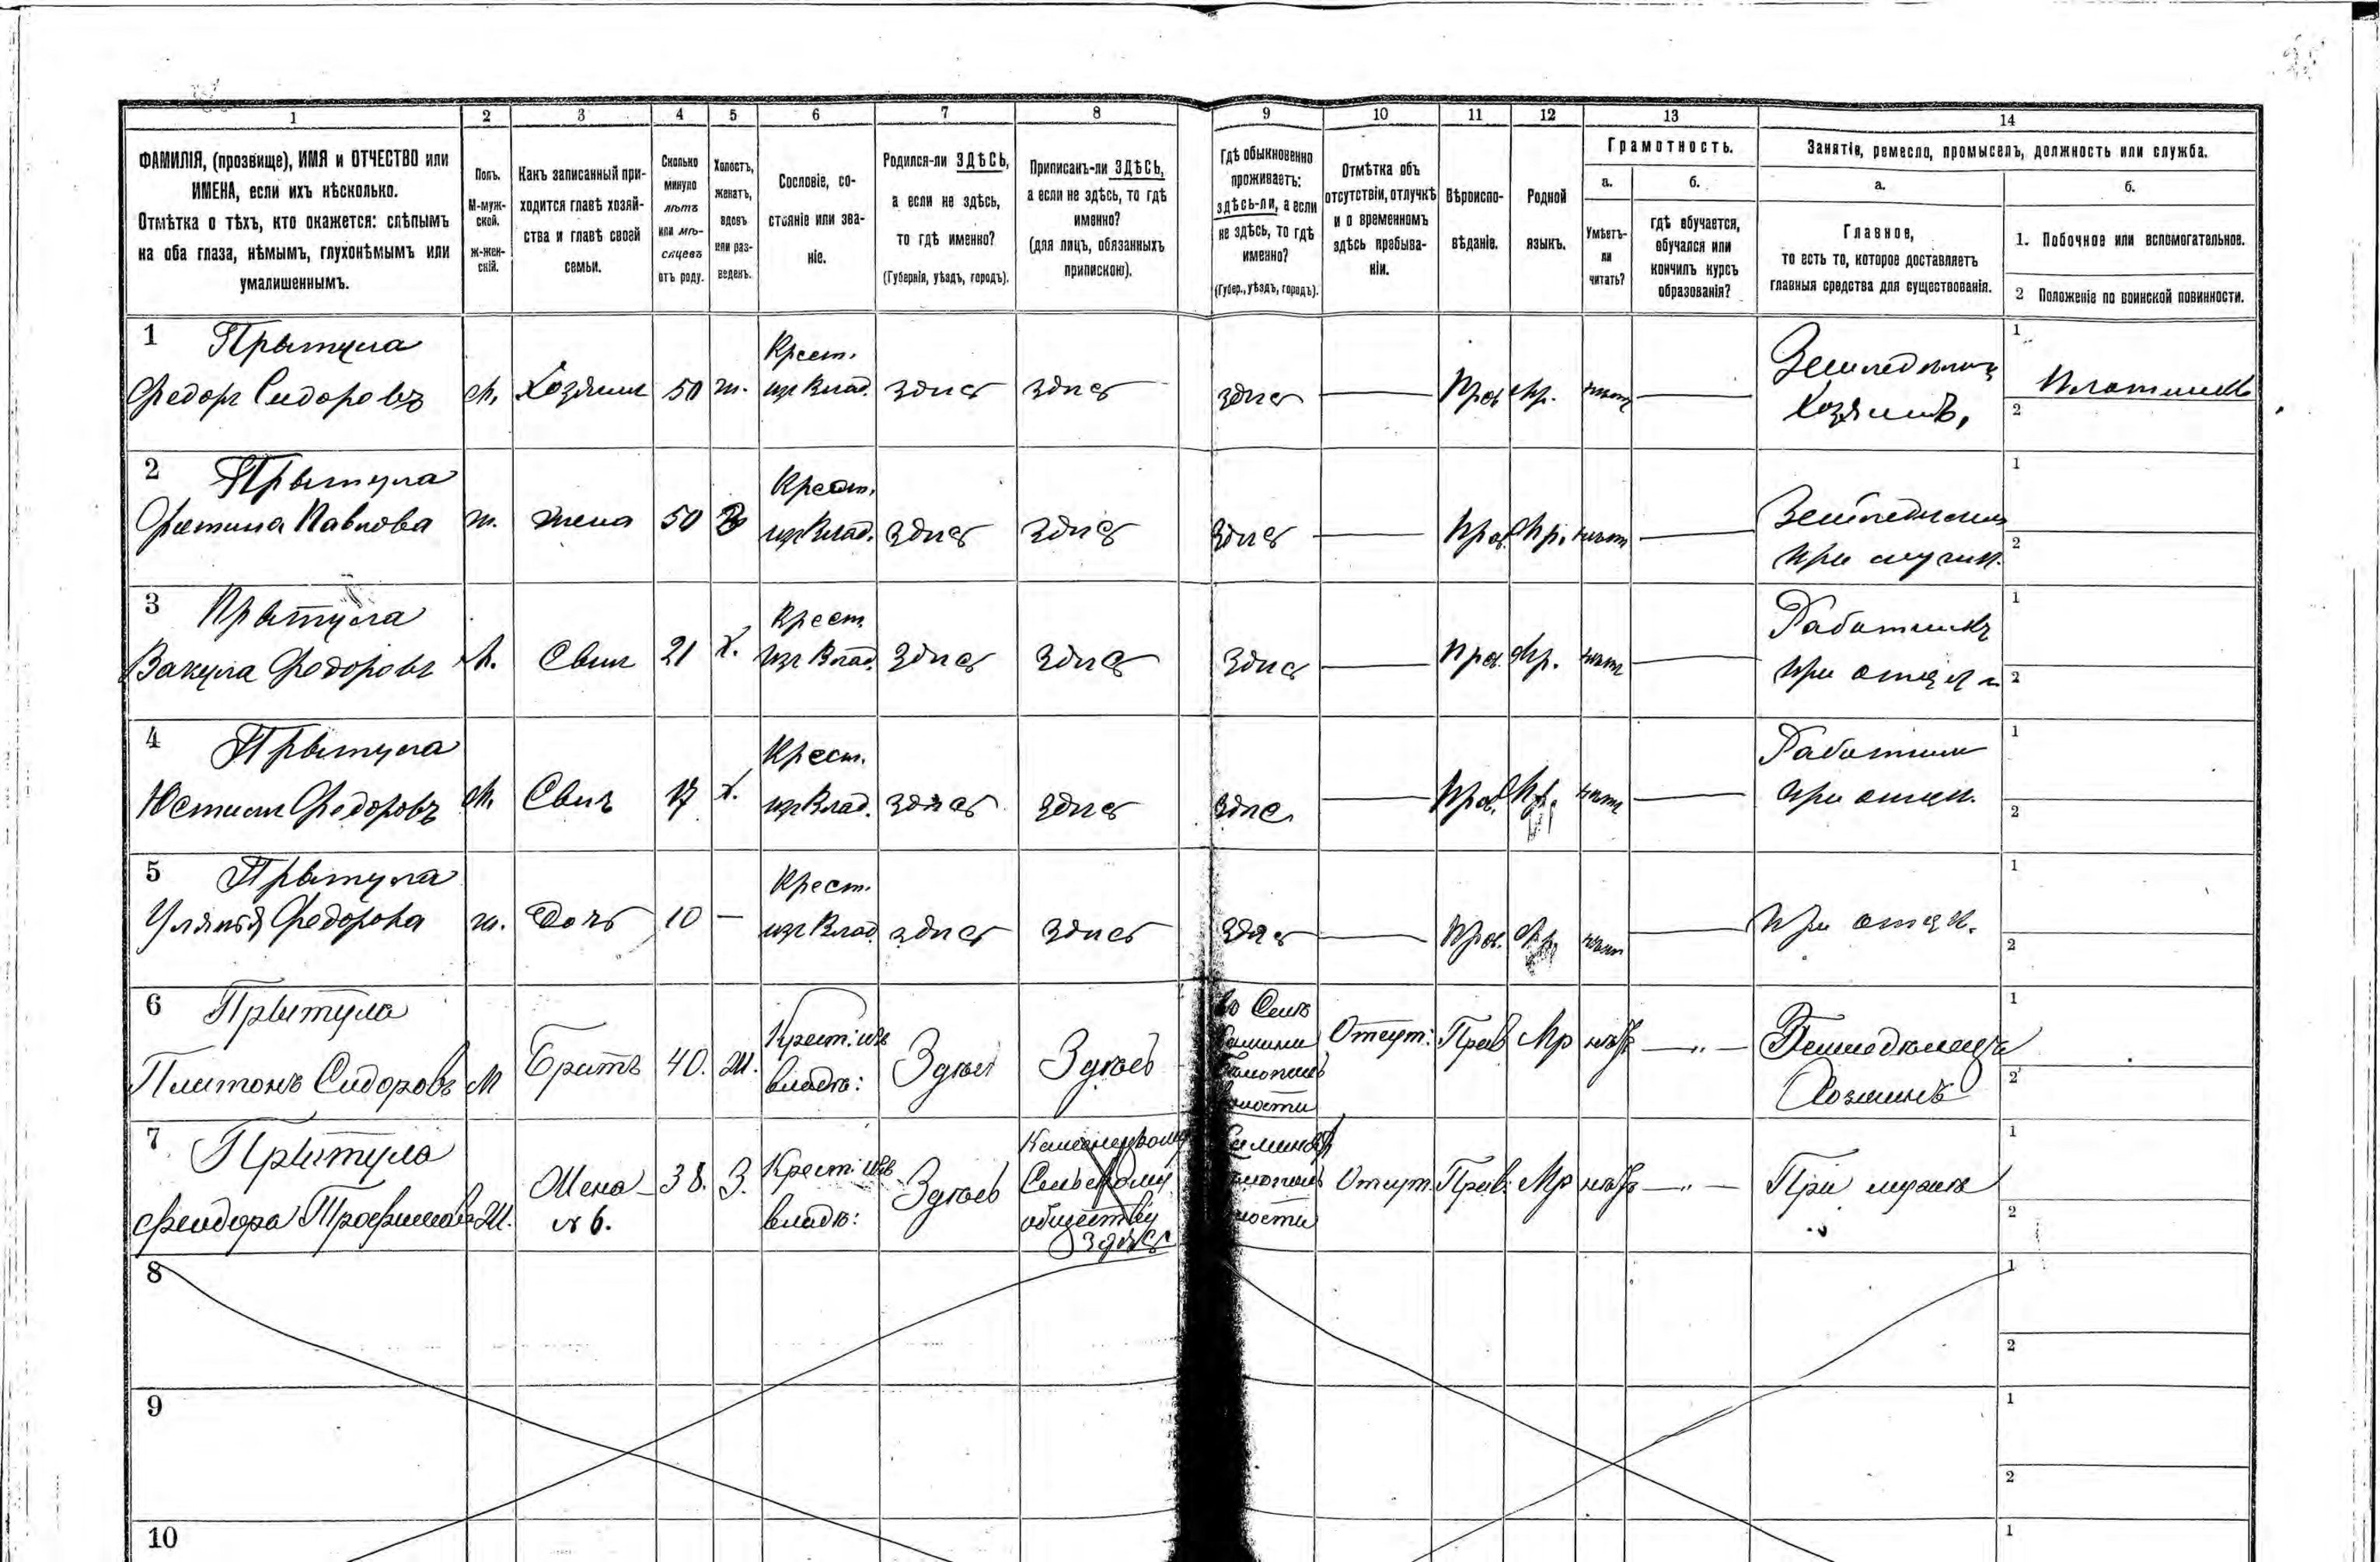 1 2 3 4 5 6 7 8 9 10 11 12 13 14
ФАМИЛІЯ, (прозвище), ИМЯ и ОТЧЕСТВО или
ИМЕНА, если ихъ нѣсколько.
Отмѣтка о тѣхъ, кто окажется: слѣпымъ
на оба глаза, нѣмымъ, глухонѣмымъ или
умалишеннымъ.
Полъ.
М-муж-
ской.
ж-жен-
скій.
Какъ записанный при-
ходится главѣ хозяй-
ства и главѣ своей
семьи.
Сколько
минуло
лѣтъ
или мѣ-
сяцевъ
отъ роду.
Холостъ,
женатъ,
вдовъ
или раз-
веденъ.
Сословіе, со-
стояніе или зва-
ніе.
Родился-ли ЗДѢСЬ,
а если не здѣсь,
то гдѣ именно?
(Губернія, уѣздъ, городъ).
Приписанъ-ли ЗДѢСЬ,
а если не здѣсь, то гдѣ
именно?
(для лицъ, обязанныхъ
припискою).
Гдѣ обыкновенно
проживаетъ:
здѣсь-ли, а если
не здѣсь, то гдѣ
именно?
(Губер., уѣздъ, городъ).
Отмѣтка объ
отсутствіи, отлучкѣ
и о временномъ
здѣсь пребыва-
ніи.
Вѣроиспо-
вѣданіе.
Родной
языкъ.
Грамотность.
а.
Умѣетъ-
ли
читать?
б.
гдѣ обучается,
обучался или
кончилъ курсъ
образованія?
Занятіе, ремесло, промыселъ, должность или служба.
а.
Главное,
то есть то, которое доставляетъ
главныя средства для существованія.
б.
1. Побочное или вспомогательное.
2 Положеніе по воинской повинности.
1 Прытула Крест. 1
Федоръ Сидоровъ м. Хозяинъ 50 ж. изъ Влад. здѣсь здѣсь здѣсь — Прав. Мр. нѣтъ — Хозяинъ, Плотникъ
2
2 Прытула Крест. 1
Павлова ж. жена 50 З изъ Влад. здѣсь здѣсь здѣсь — Прав. Мр. нѣтъ —
при мужѣ. 2
3 Прытула Крест. Работникъ 1
Вакула Федоровъ м. Сынъ 21 х. изъ Влад. здѣсь здѣсь здѣсь — Прав. Мр. нѣтъ — при отцѣ 2
4 Прытула Крест. Работникъ 1
Федоровъ м. Сынъ 17 х. изъ Влад. здѣсь здѣсь здѣсь — Прав. Мр. нѣтъ — при отцѣ.
2
5 Прытула Крест. 1
Федорова ж. Дочь 10 — изъ Влад. здѣсь здѣсь здѣсь — Прав. Мр. нѣтъ — при отцѣ.
2
6 Прытула 1
Платонъ Сидоровъ М Братъ 40. Ж. Крест: изъ владѣ: Здѣсь Здѣсь Отсут: Прав Мр — „ —
Хозяинъ 2
7 Прытула 1
Феодора Ж. Жена № 6. 38. З. Крест: изъ владѣ: Здѣсь Сельскому обществу здѣсь Отсут. Прав. Мр — „ — При мужѣ
2
8 1
2
9 1
2
10 1